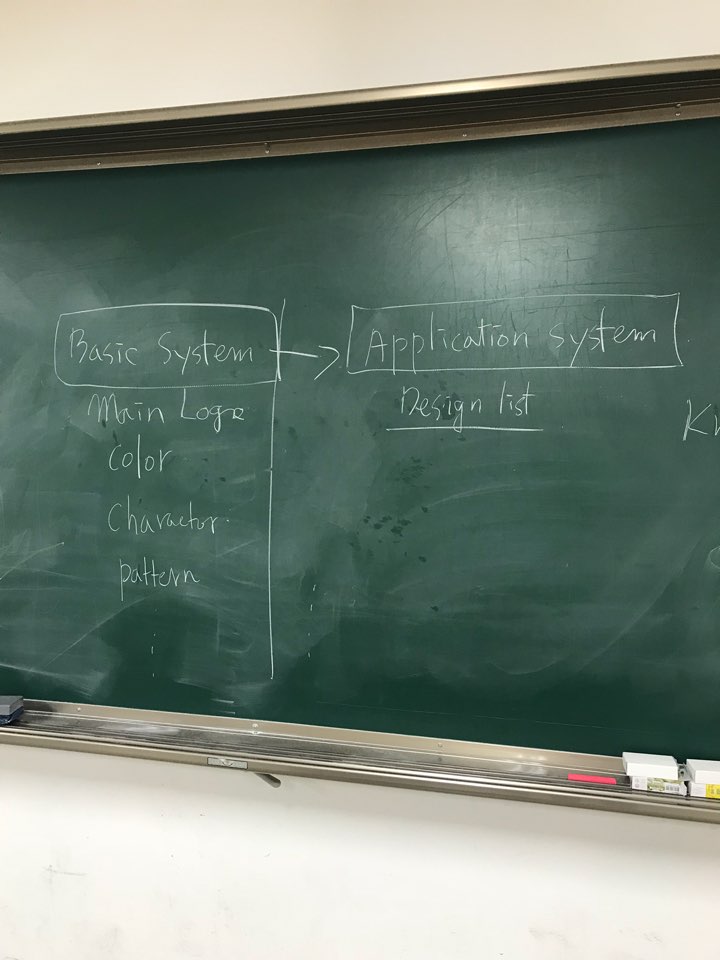 Basic System
Application system
Main Logo
Color
Charactor
pattern
Design list